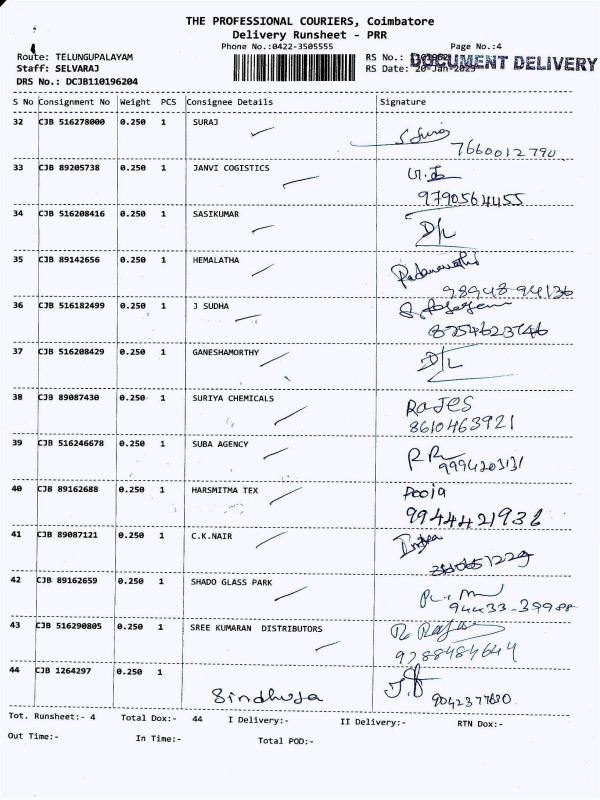 THE PROFESSIONAL COURIERS, Coimbatore
Delivery Runsheet - PRR
Phone No.:0422-3505555
Page No.:4
Route: TELUNGUPALAYAM
RS No.:
DOCUMENT DELIVERY
Staff: SELVARAJ
RS Date: 20-Jan-2023
DRS No.: DCJB110196204
S No Consignment No Weight PCS Consignee Details Signature
32 CJB 516278000 0.250 1 SURAJ
7660012790
33 CJB 89205738 0.250 1 JANVI COGISTICS
9790564455
34 CJB 516208416 0.250 1 SASIKUMAR D/L
35 CJB 89142656 0.250 1 HEMALATHA
98948 94136
36 CJB 516182499 0.250 1 J SUDHA
8754623746
37 CJB 516208429 0.250 1 GANESHAMORTHY D/L
38 CJB 89087430 0.250 1 SURIYA CHEMICALS RAJES
8610463921
39 CJB 516246678 0.250 1 SUBA AGENCY
9994203131
40 CJB 89162688 0.250 1 HARSMITMA TEX Pooja
9944421932
41 CJB 89087121 0.250 1 C.K.NAIR
42 CJB 89162659 0.250 1 SHADO GLASS PARK
94433-39988
43 CJB 516290805 0.250 1 SREE KUMARAN DISTRIBUTORS
9788484644
44 CJB 1264297 0.250 1
Sindhuja 9042377630
Tot. Runsheet:- 4 Total Dox:- 44 I Delivery:- II Delivery:- RTN Dox:-
Out Time:- In Time:- Total POD:-